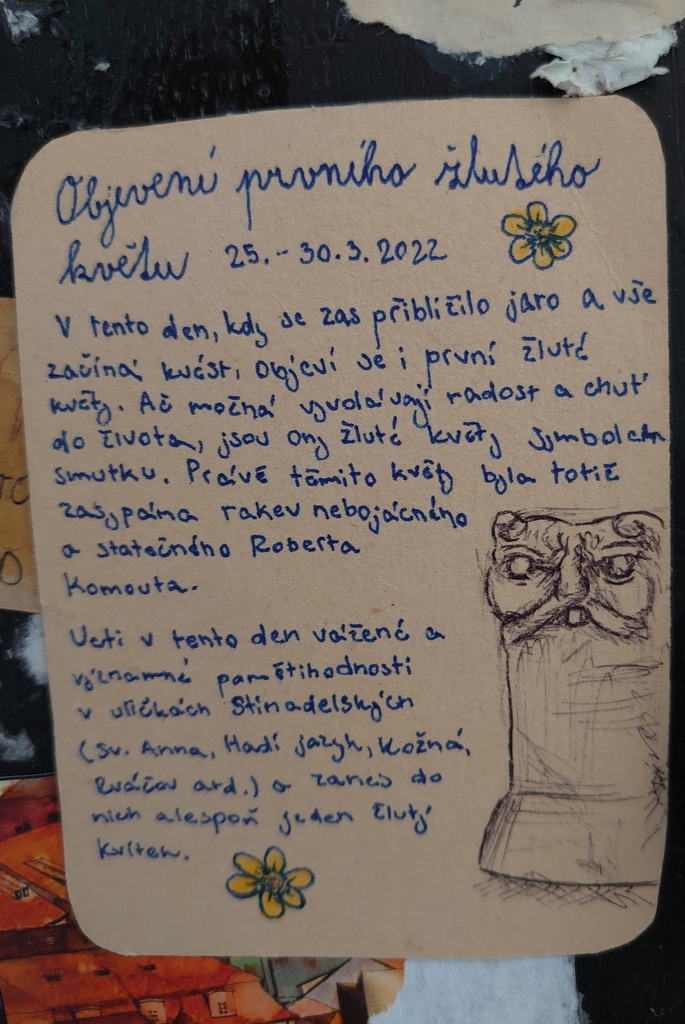 Objevení prvního žlutého
květu 25.-30.3.2022
V tento den, kdy se zas přiblížilo jaro a vše
začíná kvést, objeví se i první žluté
květy. Ač možná vyvolávají radost a chuť
do života, jsou ony žluté květy symbolem
smutku. Právě těmito květy byla totiž
zasypána rakev nebojácného
a statečného Roberta
Komouta.
Ucti v tento den vážené a
významné pamětihodnosti
v uličkách Stínadelských
(sv. Anna, Hadí jazyk, Kožná,
Rváčov atd.) a zanes do
nich alespoň jeden žlutý
kvítek.